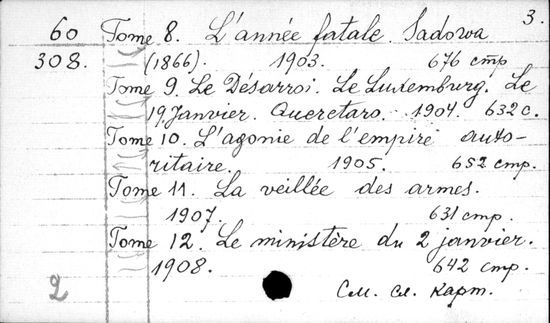 3.
60 Tome 8. L'année fatale. Sadowa
308. (1866). 1903. 676 стр
Tome 9. Le Désarroi. Le Luxemburg. Le
19 Janvier. Queretaro. 1904. 632 с.
Tome 10. L'agonie de l'empire auto-
ritaire. 1905. 652 стр.
Tome 11. La veillée des armes.
1907. 631 стр.
Tome 12. Le ministère du 2 janvier.
1908. 642 стр.
2 См. сл. карт.